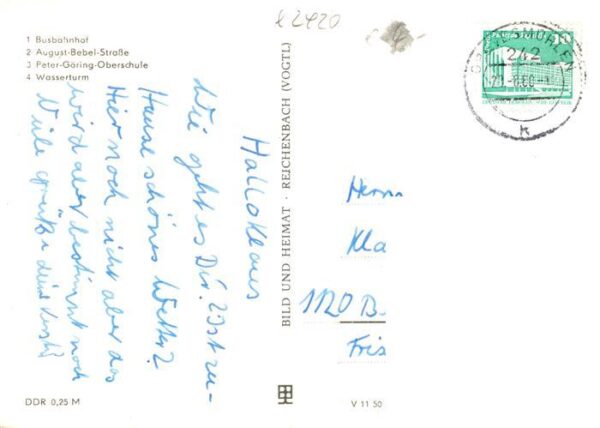 1 Busbahnhof
2 August-Bebel-Straße
3 Peter-Göring-Oberschule
4 Wasserturm
Hallo Klaus
Wie geht es Dir? Ist zu-
Hause schönes Wetter?
Hier noch nicht aber das
wird aber bestimmt noch
Viele Grüße dein
BILD UND HEIMAT · REICHENBACH (VOGTL)
Herrn
Kla
1120 B.
Fris
DDR 0,25 M
V 11 50
242
10
k